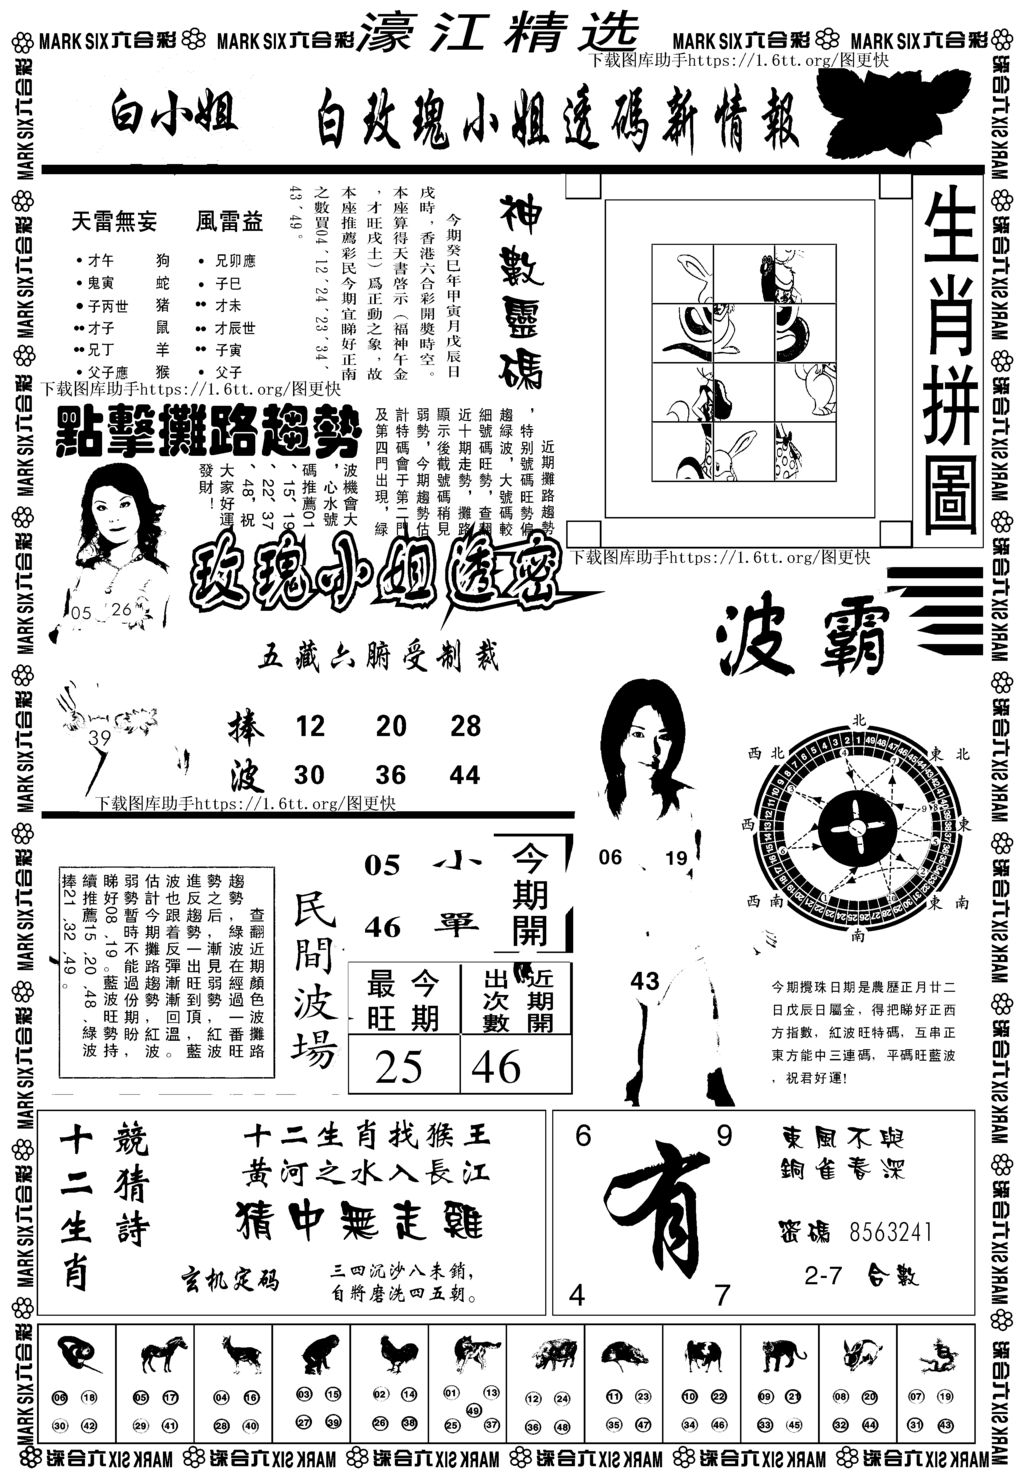 MARK SIX六合彩 MARK SIX六合彩 濠江精选 MARK SIX六合彩 MARK SIX六合彩
下载图库助手https://1.6tt.org/图更快
白小姐 白玫瑰小姐透碼新情報
天雷無妄 風雷益
才午 狗 兄卯應
鬼寅 蛇 子巳
子丙世 猪 才未
才子 鼠 才辰世
兄丁 羊 子寅
父子應 猴 父子
神數靈碼
今期癸巳年甲寅月戊辰日
戌時，香港六合彩開獎時空。
本座算得天書啓示（福神午金
，才旺戌土）爲正動之象，故
本座推薦彩民今期宜睇好正南
之數買04、12、24、23、34、
43、49。
生肖拼圖
下载图库助手https://1.6tt.org/图更快
點擊攤路趨勢
近期攤路趨勢
，特别號碼旺勢偏
趨緑波，大號碼較
細號碼旺勢，查翻
近十期走勢，攤路
顯示後截號碼稍見
弱勢，今期趨勢估
計特碼會于第二門
及第四門出現，緑
波機會大
，心水號
碼推薦01
、15、19
、22、37
、48，祝
大家好運
發財！
05 26
39
下载图库助手https://1.6tt.org/图更快
玫瑰小姐透密
五藏六腑受制裁
捧 12 20 28
波 30 36 44
下载图库助手https://1.6tt.org/图更快
波霸
06 19
43
北
西北 東北
西 東
西南 東南
南
今期攪珠日期是農歷正月廿二
日戊辰日屬金，得把睇好正西
方指數，紅波旺特碼，互串正
東方能中三連碼，平碼旺藍波
，祝君好運!
查翻近期顏色波攤路
趨勢，綠波在經過一番旺
勢之后，漸見弱勢，紅波
進反趨勢一出旺到頂，藍
波也跟着反彈漸漸回溫。
估計今期攤路趨勢紅波，
弱勢暫時不能過份盼勢
睇好08、19。藍波旺期，持
續推薦15、20、48、綠波
捧21、32、49。
民間波場
05 小
46 單
今期開
今期最旺 近期開出次數
25 46
十二生肖
競猜詩
十二生肖找猴王
黄河之水入長江
猜中無走雞
玄机定码
三四沉沙八未銷，
自將磨洗四五朝。
6 9
有
4 7
東風不與
銅雀春深
密碼 8563241
2-7 合數
06 18 05 17 04 16 03 15 02 14 01 13 12 24 11 23 10 22 09 21 08 20 07 19
49
30 42 29 41 28 40 27 39 26 38 25 37 36 48 35 47 34 46 33 45 32 44 31 43